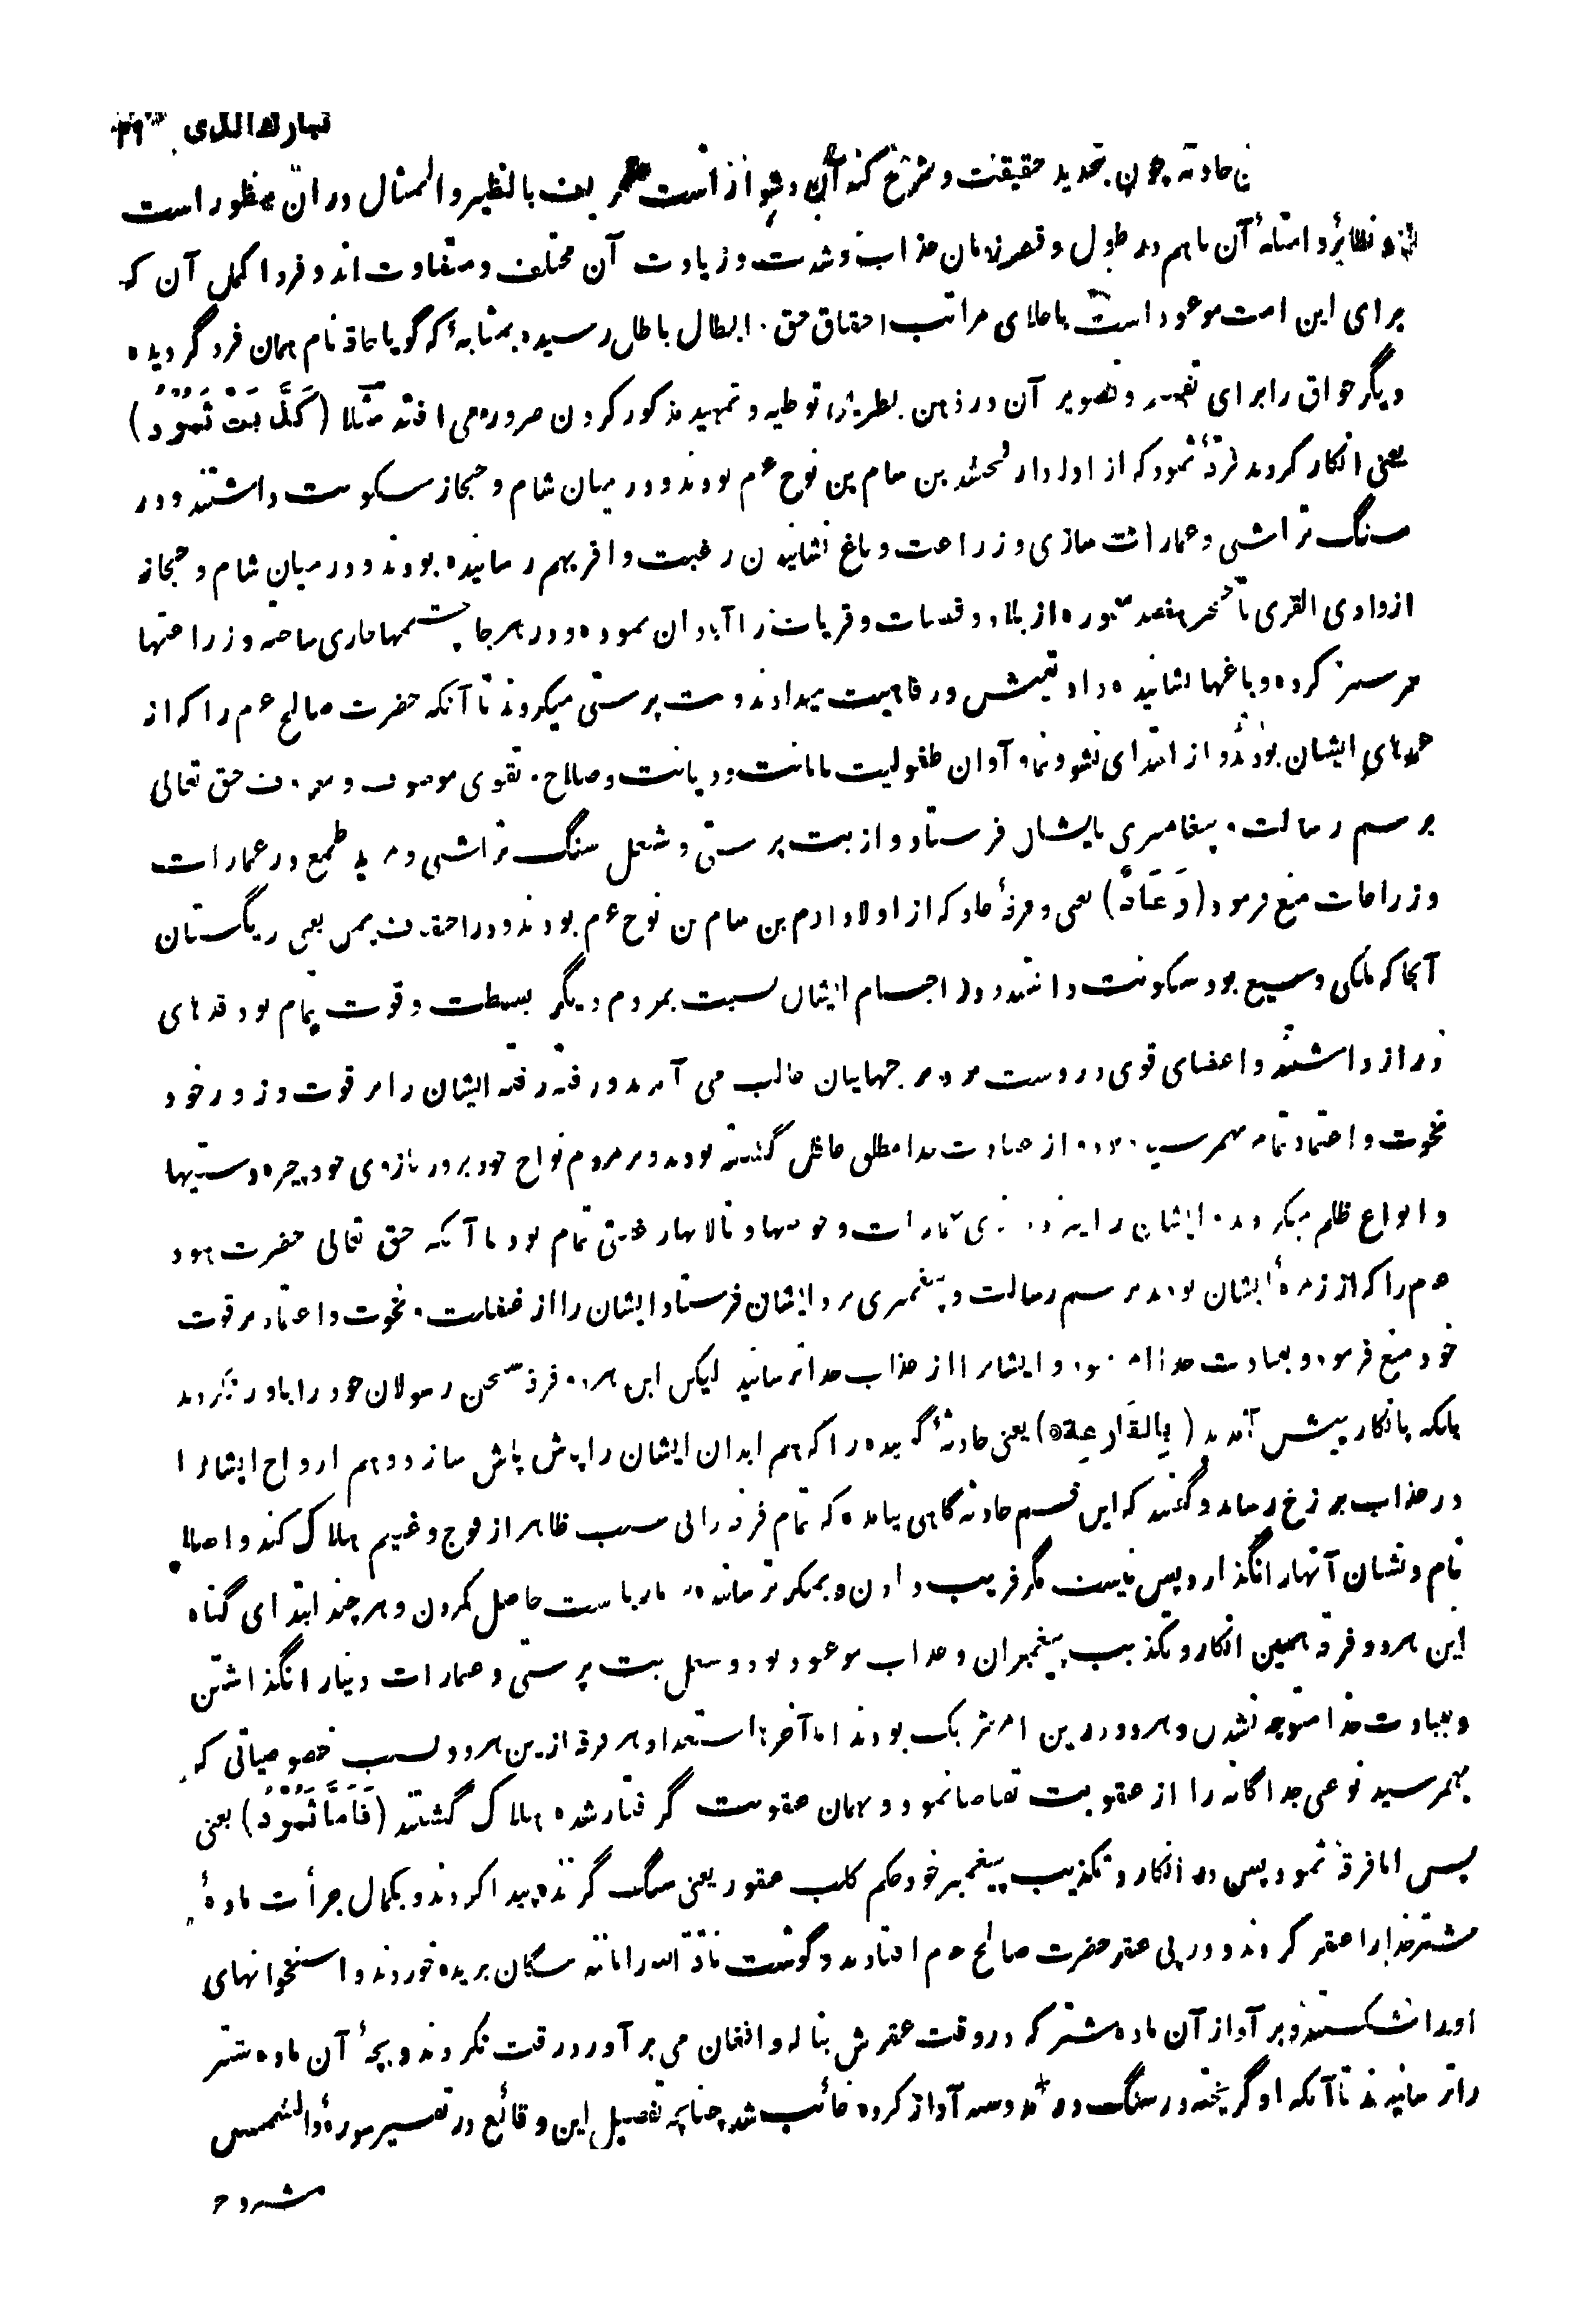 تبارك الذی ٢٩
حادثه چون تحدید حقیقت و شرح کنه آن دشوار است تعریف بالنظیر و المثال دران منظور است
و نظائر و امثلهٔ آن باهم در طول و قصر زمان عذاب و شدت و زیادت آن مختلف و متفاوت اند و فرد اکمل آن که
برای این امت موعود است باعلای مراتب احقاق حق و ابطال باطل رسیده بمثابهٔ که گویا حاقه نام همان فرد گردیده
دیگر حواق را برای تفهیم و تصویر آن در ذهن بطریق توطیه و تمهید مذکور کردن ضرور می افتد مثلا (كَذَّبَتْ ثَمُوْدُ)
یعنی انکار کردند فرقهٔ ثمود که از اولاد ارفخشد بن سام بن نوح ءم بودند و در میان شام و حجاز سکونت داشتند و در
سنگ تراشی و عمارات سازی و زراعت و باغ نشانیدن رغبت وافر بهم رسانیده بودند و در میان شام و حجاز
از وادی القری تا هفصد معموره از بلاد و قصبات و قریات را آبادان نموده و در هر جا چشمها جاری ساخته و زراعتها
سرسبز کرده و باغها نشانیده داد تعیش و رفاهیت میدادند و بت پرستی میکردند تا آنکه حضرت صالح ءم را که از
عمدهای ایشان بودند و از ابتدای نشوونما و آوان طفولیت بامانت و دیانت و صلاح و تقوی موصوف و معروف حق تعالی
برسم رسالت و پیغامبری بایشان فرستاد و از بت پرستی و شغل سنگ تراشی و مزید طمع در عمارات
و زراعات منع فرمود (وَعَادٌ) یعنی و فرقهٔ عاد که از اولاد ارم بن سام بن نوح ءم بودند و در احقاف یمن یعنی ریگستان
آنجا که ملکی وسیع بود سکونت داشتند و در اجسام ایشان نسبت بمردم دیگر بسطت و قوت تمام بود قدهای
دراز داشتند و اعضای قوی و درست و بر جهانیان غالب می آمدند و رفته رفته ایشان را بر قوت و زور خود
نخوت و اعتماد تمام بهمرسید و از عبادت خدا مطلق غافل گشته بودند و بر مردم نواح خود بزور بازوی خود چیره دستیها
و انواع ظلم میکردند و ایشان را نیز در عمارات و حوضها و تالابها رغبتی تمام بود تا آنکه حق تعالی حضرت هود
ءم را که از زمرهٔ ایشان بودند برسم رسالت و پیغمبری بر ایشان فرستاد ایشان را از غفلت و نخوت و اعتماد بر قوت
خود منع فرمود و بعبادت خدا امر نمود و ایشانرا از عذاب خدا ترسانید لیکن این هردو فرقه سخن رسولان خود را باور نکردند
بلکه بانکار پیش آمدند (بِالْقَارِعَةِ) یعنی حادثهٔ کوبنده را که هم ابدان ایشان را پاش پاش سازد و هم ارواح ایشانرا
در عذاب برزخ رساند و گفتند که این قسم حادثه گاهی نیامده که تمام فرقه را بی سبب ظاهر از فوج و غنیم هلاک کند و اصلا
نام و نشان آنها را نگذارد پس نیست مگر فریب دادن و بمکر ترسانیده ریاست حاصل کردن و هر چند ابتدای گناه
این هردو فرقه همین انکار و تکذیب پیغمبران و عذاب موعود بود و شغل بت پرستی و عمارات دنیا را نگذاشتن
و بعبادت خدا متوجه نشدن و هردو درین امر شریک بودند اما آخرها استعداد هر فرقه ازین هردو بسبب خصوصیاتی که
بهمرسید نوعی جداگانه را از عقوبت تقاضا نمود و بهمان عقوبت گرفتار شده هلاک گشتند (فَأَمَّا ثَمُوْدُ) یعنی
پس اما فرقهٔ ثمود پس در انکار و تکذیب پیغمبر خود حکم کلب عقور یعنی سگ گزنده پیدا کردند و بکمال جرأت مادهٔ
شتر خدا را عقر کردند و در پی عقر حضرت صالح ءم افتادند و گوشت ناقة الله را مانند سگان بریده خوردند و استخوانهای
او را شکستند و بر آواز آن ماده شتر که در وقت عقرش بناله و افغان می برآورد رقت نکردند و بچهٔ آن ماده شتر
را ترسانیدند تا آنکه او گریخته در سنگ درآمد و سه آواز کرده غائب شد چنانچه تفصیل این وقائع در تفسیر سورهٔ والشمس
مشروح